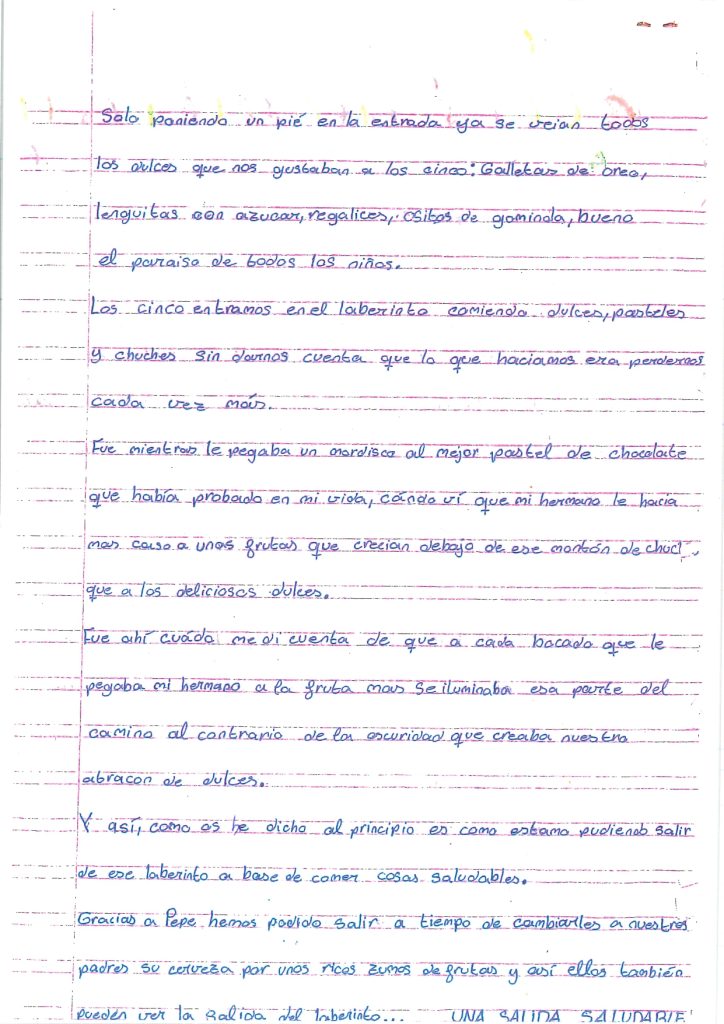 Solo poniendo un pié en la entrada ya se veian todos
los dulces que nos gustaban a los cinco: Galletas de oreo,
lenguitas con azucar, regalices, ositos de gominola, bueno
el paraiso de todos los niños.
Los cinco entramos en el laberinto comiendo dulces, pasteles
y chuches sin darnos cuenta que lo que haciamos era perdernos
cada vez más.
Fue mientras le pegaba un mordisco al mejor pastel de chocolate
que había probado en mi vida, cándo ví que mi hermano le hacia
mas caso a unas frutas que crecian debajo de ese montón de chucl,
que a los deliciosos dulces.
Fue ahí cuádo me di cuenta de que a cada bocado que le
pegaba mi hermano a la fruta mas se iluminaba esa parte del
camino al contrario de la oscuridad que creaba nuestro
atracon de dulces.
Y así, como os he dicho al principio es como estamo pudiendo salir
de ese laberinto a base de comer cosas saludables.
Gracias a Pepe hemos podido salir a tiempo de cambiarles a nuestros
padres su cerveza por unos ricos zumos de frutas y así ellos también
pueden ver la salida del laberinto... UNA SALIDA SALUDABLE!